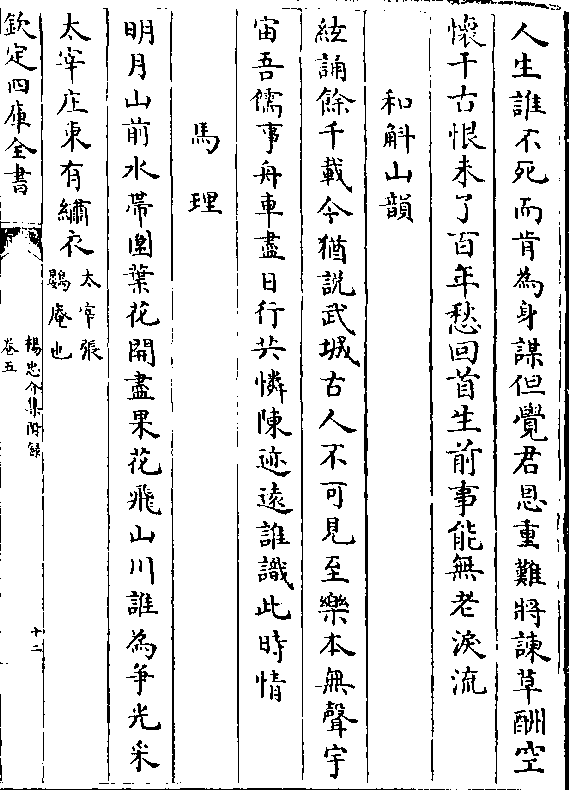 人生誰不死而肯為身謀但覺君恩重難將諫草酬空
懷千古恨未了百年愁回首生前事能無老淚流
和斛山韻
絃誦餘千載今猶説武城古人不可見至樂本無聲宇
宙吾儒事舟車盡日行共憐陳迹遠誰識此時情
馬理
明月山前水帶圍葉花開盡果花飛山川誰為爭光采
太宰庄東有繡衣太宰張
鷃庵也
欽定四庫全書
楊忠介集附錄
卷五
十二